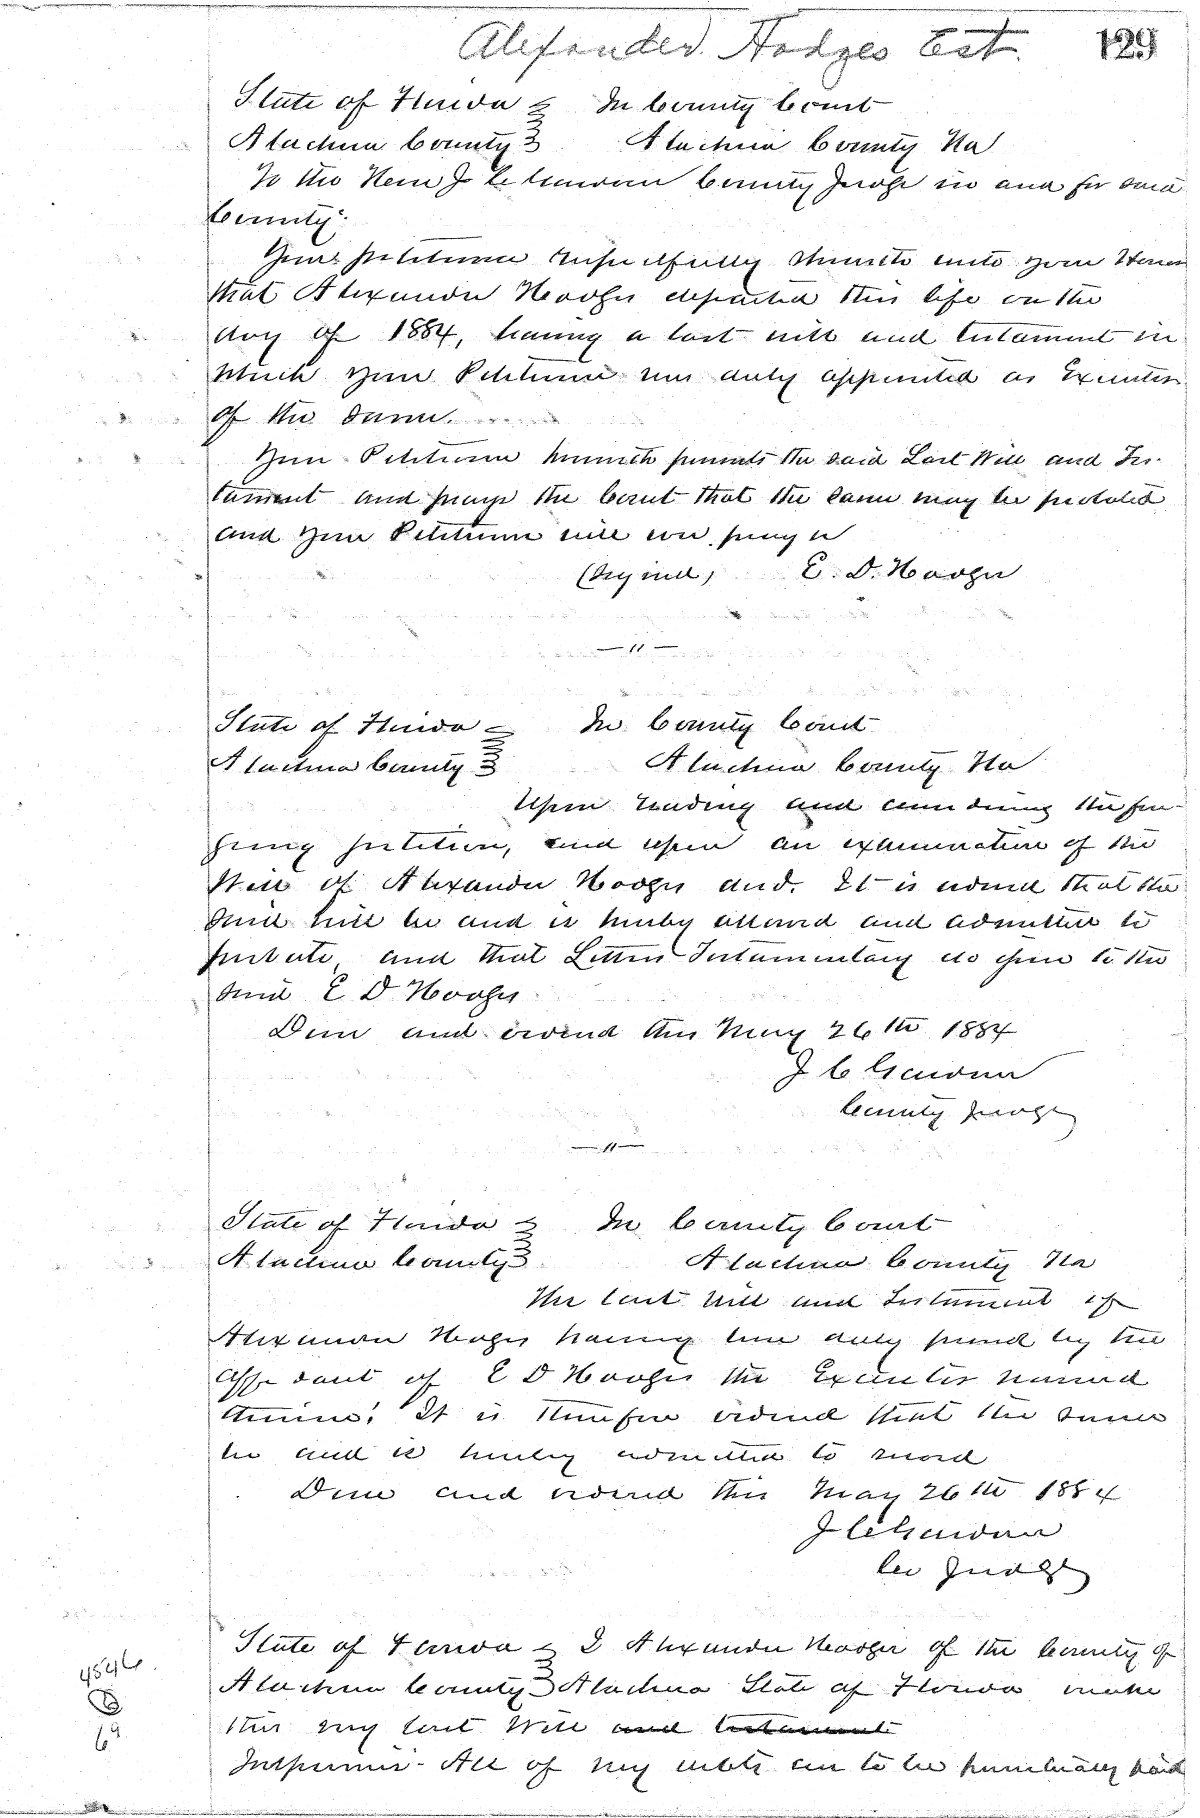 Alexander Hodges Est. 129
State of Florida } In County Court
Alachua County } Alachua County Fla
To the Hon J C Gardner County Judge in and for said
County:
Your petitioner respectfully showeth unto your Honor
that Alexander Hodges departed this life on the
day of 1884, having a last will and testament in
which your Petitioner was duly appointed as Executor
of the same.
Your Petitioner herewith presents the said Last Will and Tes-
tament and prays the Court that the same may be probated
and your Petitioner will ever pray &c
(Signed) E. D. Hodges
—"—
State of Florida } In County Court
Alachua County } Alachua County Fla
Upon reading and considering the fore-
going petition, and upon an examination of the
Will of Alexander Hodges decd. It is ordered that the
said will be and is hereby allowed and admitted to
probate, and that Letters Testamentary do give to the
said E D Hodges
Done and ordered this May 26th 1884
J C Gardner
County Judge
—"—
State of Florida } In County Court
Alachua County } Alachua County Fla
The last will and testament of
Alexander Hodges having been duly proved by the
affidavit of E D Hodges the Executor named
therein: It is therefore ordered that the same
be and is hereby admitted to record
Done and ordered this May 26th 1884
J C Gardner
Co Judge
State of Florida } I Alexander Hodges of the County of
Alachua County } Alachua State of Florida make
this my last Will and testament
Imprimis- All of my debts are to be punctually paid
4546
B
69